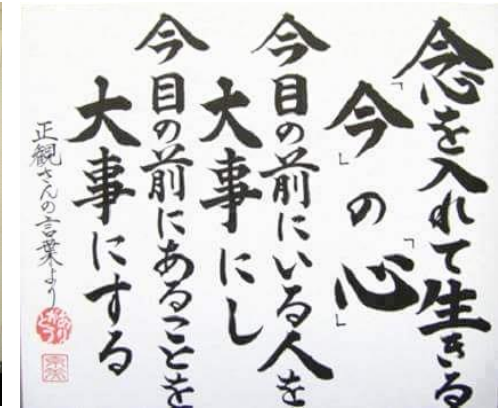 念を入れて生きる
「今」の「心」
今目の前にいる人を
大事にし
今目の前にあることを
大事にする
正観さんの言葉より
ありがとう